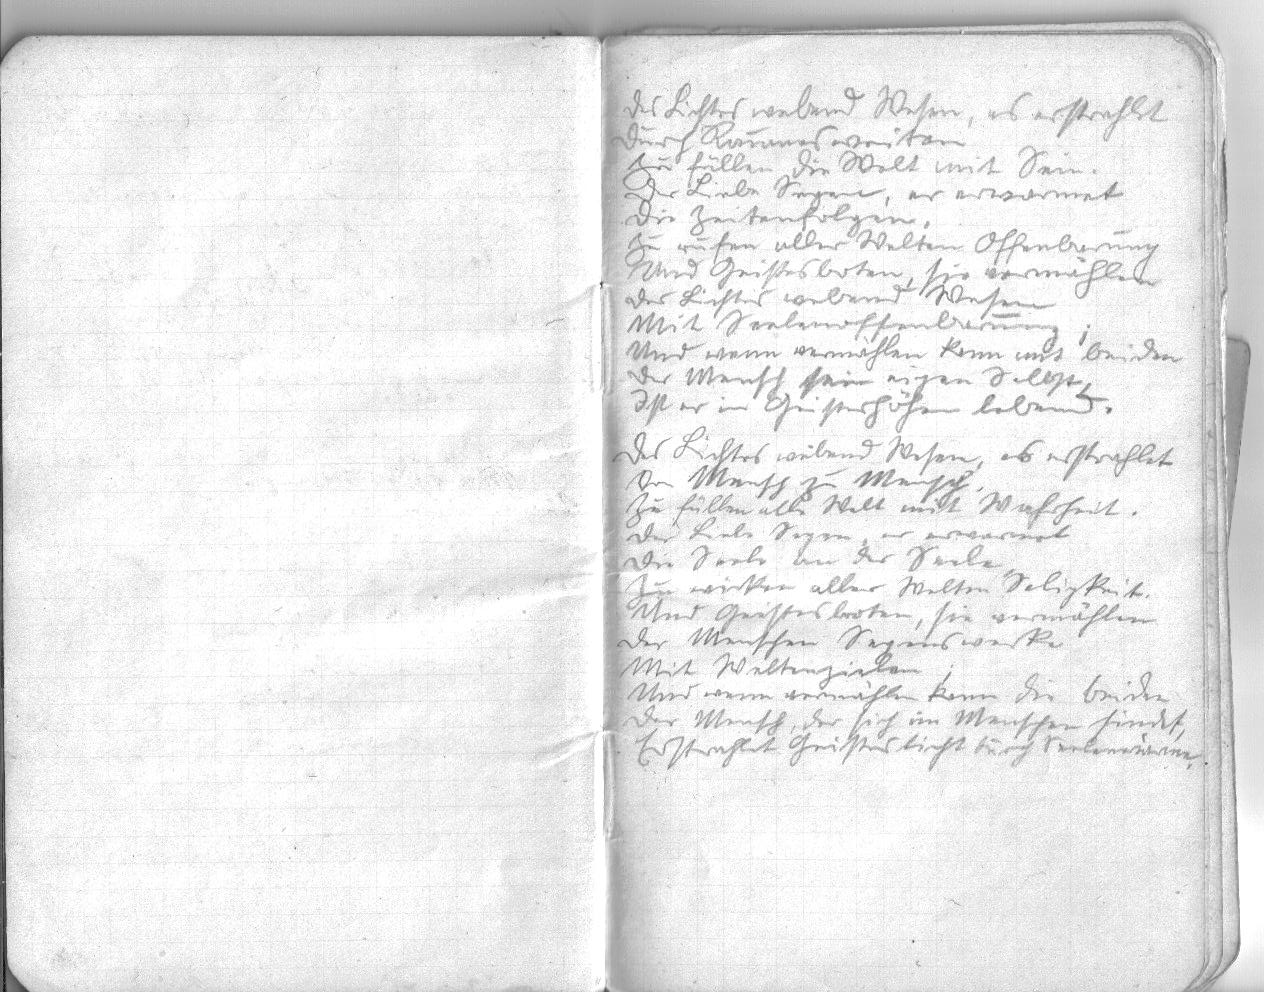 Des Lichtes webend Wesen, es erstrahlet
Durch Raumesweiten
Zu füllen die Welt mit Sein.
Der Liebe Segen, er erwarmet
Die Zeitenfolgen,
Zu rufen aller Welten Offenbarung
Und Geistesboten, sie vermählen
Des Lichtes webend Wesen
Mit Seelenoffenbarung;
Und wenn vermählen kann mit beiden
Der Mensch sein eigen Selbst,
Ist er in Geisteshöhen lebend.
Des Lichtes webend Wesen, es erstrahlet
Von Mensch zu Mensch,
Zu füllen alle Welt mit Wahrheit.
Der Liebe Segen, er erwarmet
Die Seele an der Seele,
Zu wirken aller Welten Seligkeit.
Und Geistesboten, sie vermählen
Der Menschen Segenswerke
Mit Weltenzielen;
Und wenn vermählen kann die beiden
Der Mensch, der sich im Menschen findet,
Erstrahlet Geisteslicht durch Seelenwärme.